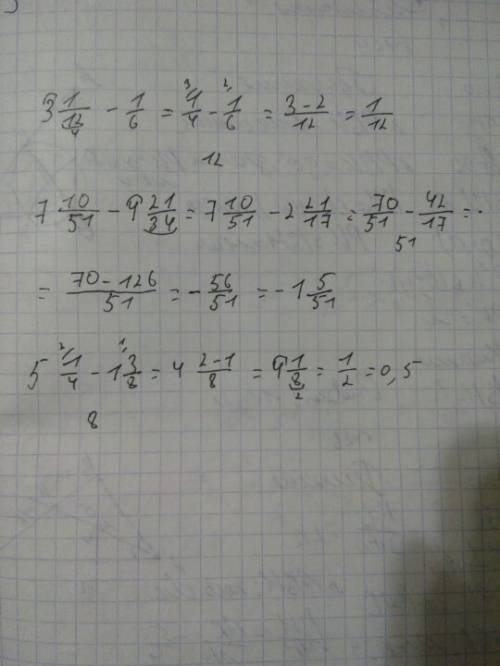 3 1/12 - 1/6 = 1/4 - 1/6 = (3-2)/12 = 1/12
12
7 10/51 - 4 21/34 = 7 10/51 - 2 21/17 = 70/51 - 42/17 =
= (70-126)/51 = -56/51 = -1 5/51
5 1/4 - 1 3/8 = 4 (2-1)/8 = 4 1/8 = 1/2 = 0,5
8